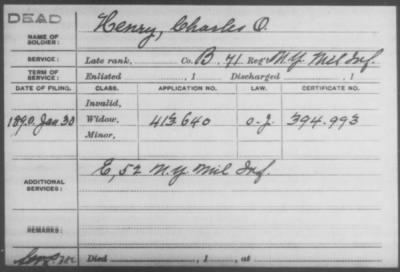 DEAD
NAME OF SOLDIER: Henry, Charles O.
SERVICE: Late rank, Co. B. 71 Reg't N.Y. Mil Inf.
TERM OF SERVICE: Enlisted , 1 Discharged , 1
DATE OF FILING. CLASS. APPLICATION NO. LAW. CERTIFICATE NO.
Invalid,
1890. Jan 30 Widow, 413.640 O-J. 394.993
Minor,
ADDITIONAL SERVICES: E, 52 N.Y. Mil Inf.
REMARKS:
Died , 1 , at